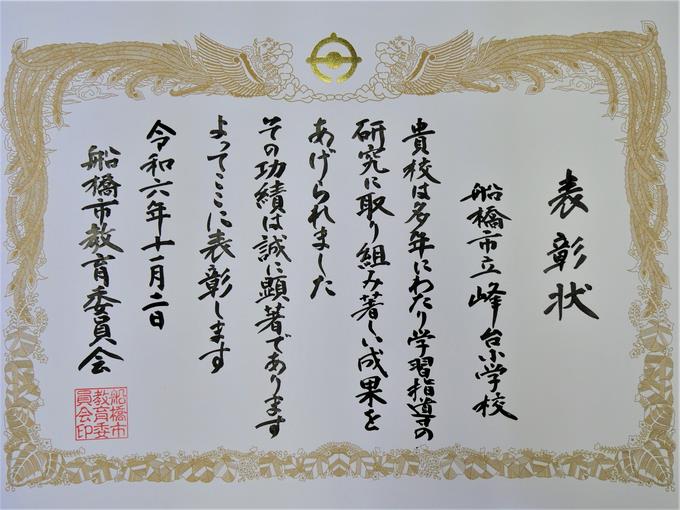 表彰状
船橋市立峰台小学校
貴校は多年にわたり学習指導の
研究に取り組み著しい成果を
あげられました
その功績は誠に顕著であります
よってここに表彰します
令和六年十一月二日
船橋市教育委員会
船橋市
教育委
員会印